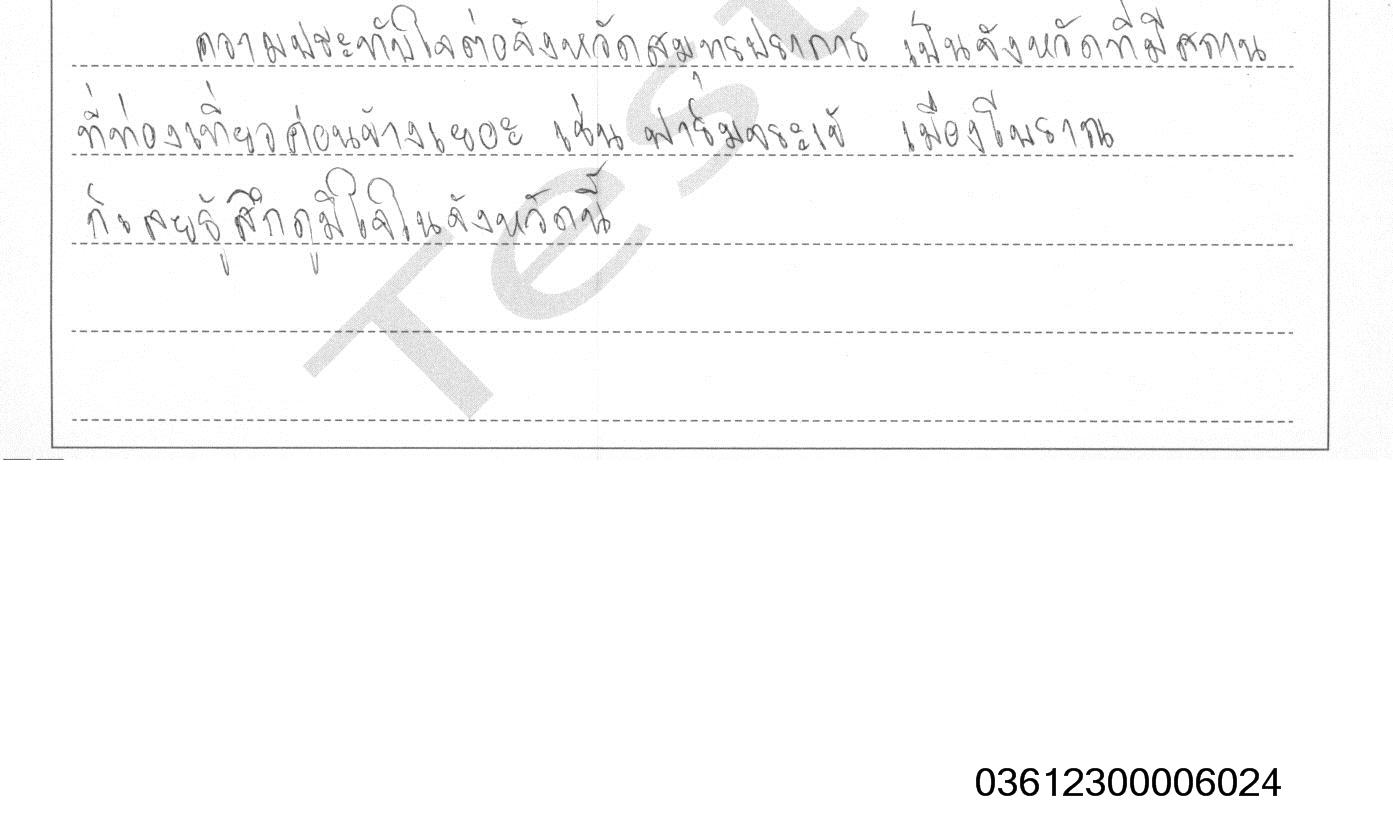 ความประทับใจต่อจังหวัดสมุทรปราการ เป็นจังหวัดที่มีสถาน
ที่ท่องเที่ยวค่อนข้างเยอะ เช่น ฟาร์มจระเข้ เมืองโบราณ
ก็เลยรู้สึกภูมิใจในจังหวัดนี้
Test
03612300006024